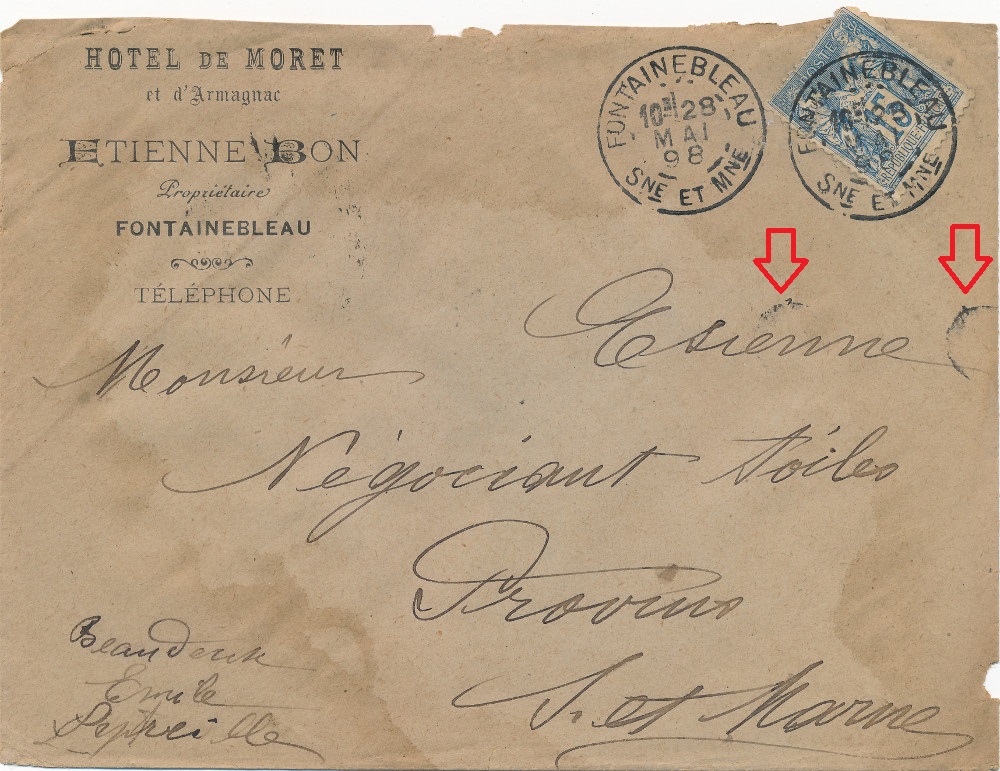 HOTEL DE MORET
et d'Armagnac
ETIENNE BON
Propriétaire
FONTAINEBLEAU
TÉLÉPHONE
FONTAINEBLEAU
10 28
MAI
98
SNE ET MNE
FONTAINEBLEAU
15
SNE ET MNE
Monsieur Etienne
Négociant toiles
Provins
S. et Marne
Emile